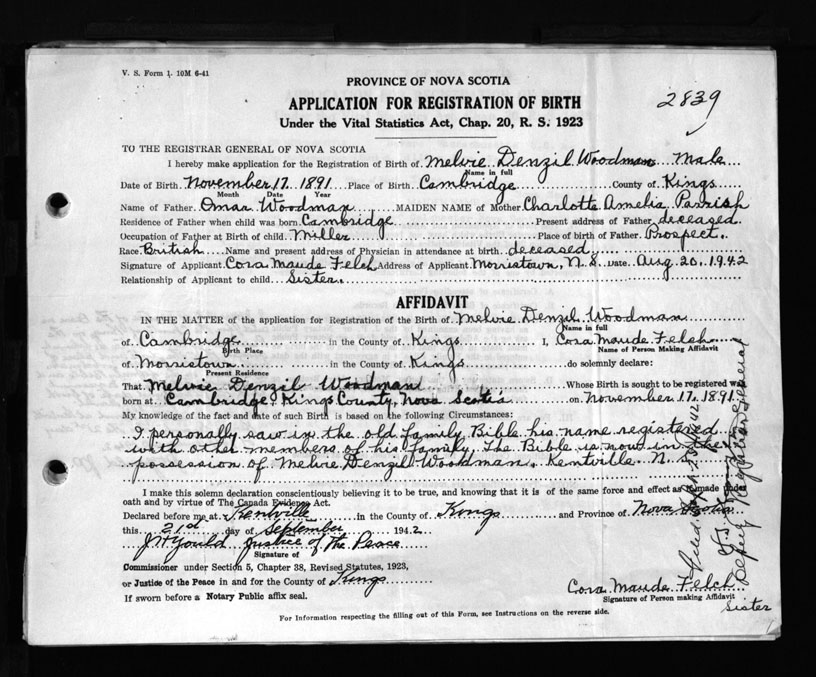 V. S. Form 1. 10M 6-41
PROVINCE OF NOVA SCOTIA
2839
APPLICATION FOR REGISTRATION OF BIRTH
Under the Vital Statistics Act, Chap. 20, R. S. 1923
TO THE REGISTRAR GENERAL OF NOVA SCOTIA
I hereby make application for the Registration of Birth of Melvie Denzil Woodman Male
Name in full
Date of Birth November 17. 1891 Place of Birth Cambridge County of Kings
Month Date Year
Name of Father Omar Woodman MAIDEN NAME of Mother Charlotte Amelia Parrish
Residence of Father when child was born Cambridge Present address of Father deceased
Occupation of Father at Birth of child Miller Place of birth of Father Prospect.
Race British Name and present address of Physician in attendance at birth deceased
Signature of Applicant Cora Maude Felch Address of Applicant Morristown, N. S Date Aug. 20. 1942
Relationship of Applicant to child Sister.
AFFIDAVIT
IN THE MATTER of the application for Registration of the Birth of Melvie Denzil Woodman
Name in full
of Cambridge in the County of Kings I, Cora Maude Felch
Birth Place Name of Person Making Affidavit
of Morristown in the County of Kings do solemnly declare:
Present Residence
That Melvie Denzil Woodman Whose Birth is sought to be registered was
born at Cambridge, Kings County, Nova Scotia on November 17. 1891
My knowledge of the fact and date of such Birth is based on the following Circumstances:
I personally saw in the old family Bible his name registered
with other members of his family. The Bible is now in the
possession of Melvie Denzil Woodman. Kentville N. S.
I make this solemn declaration conscientiously believing it to be true, and knowing that it is of the same force and effect as if made under
oath and by virtue of The Canada Evidence Act.
Declared before me at Kentville in the County of Kings and Province of Nova Scotia
this 21st day of September 1942
Justice of The Peace
Signature of
Commissioner under Section 5, Chapter 38, Revised Statutes, 1923,
or Justice of the Peace in and for the County of Kings
If sworn before a Notary Public affix seal.
Cora Maude Felch
Signature of Person making Affidavit
Sister
For Information respecting the filling out of this Form, see Instructions on the reverse side.
Deputy Registrar General